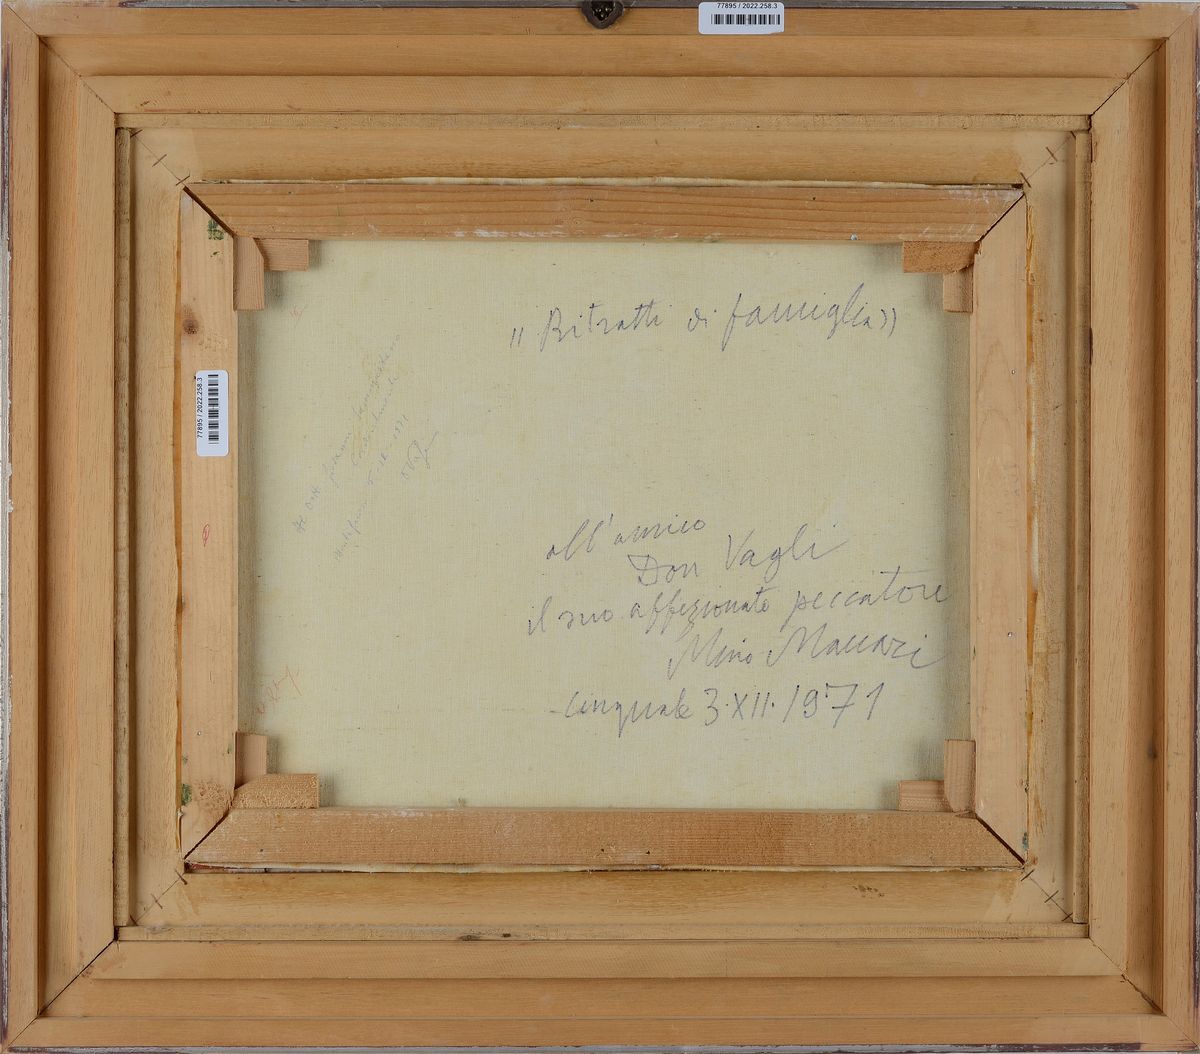 77895 / 2022.258.3
"Ritratti di famiglia"
77895 / 2022.258.3
all'amico
Don Vagli
il suo affezionato peccatore
Mino Maccari
Cinquale 3.XII.1971